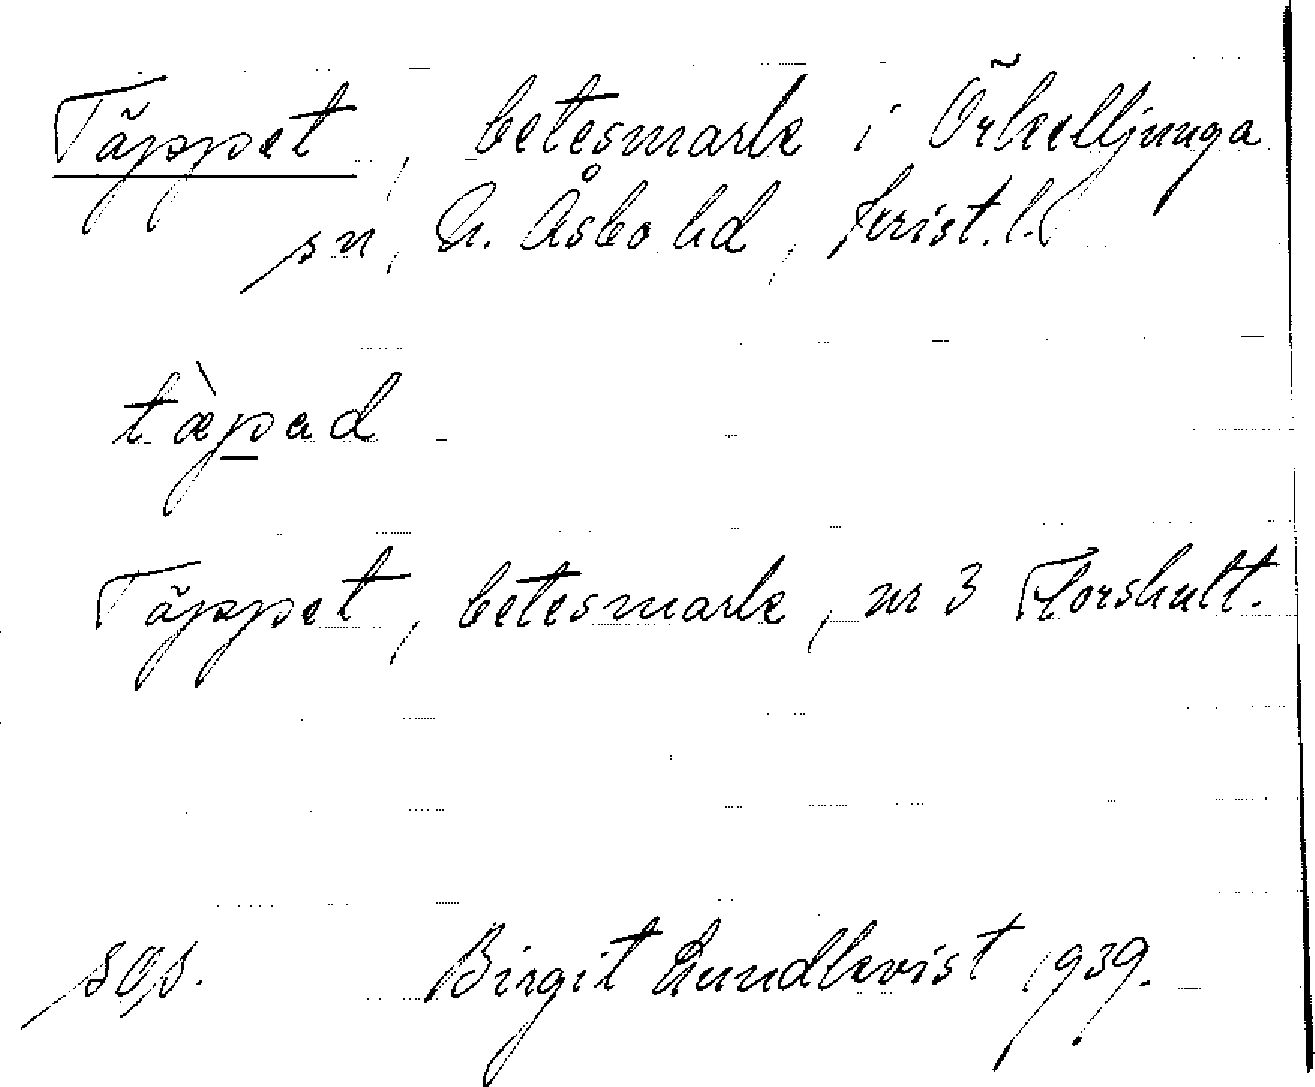 Täppet, betesmark i Örkelljunga
sn, N. Åsbo hd, Krist. l.
tæ̀pad
Täppet, betesmark, nr 3 Forshult.
sgs. Birgit Lundkvist 1939.